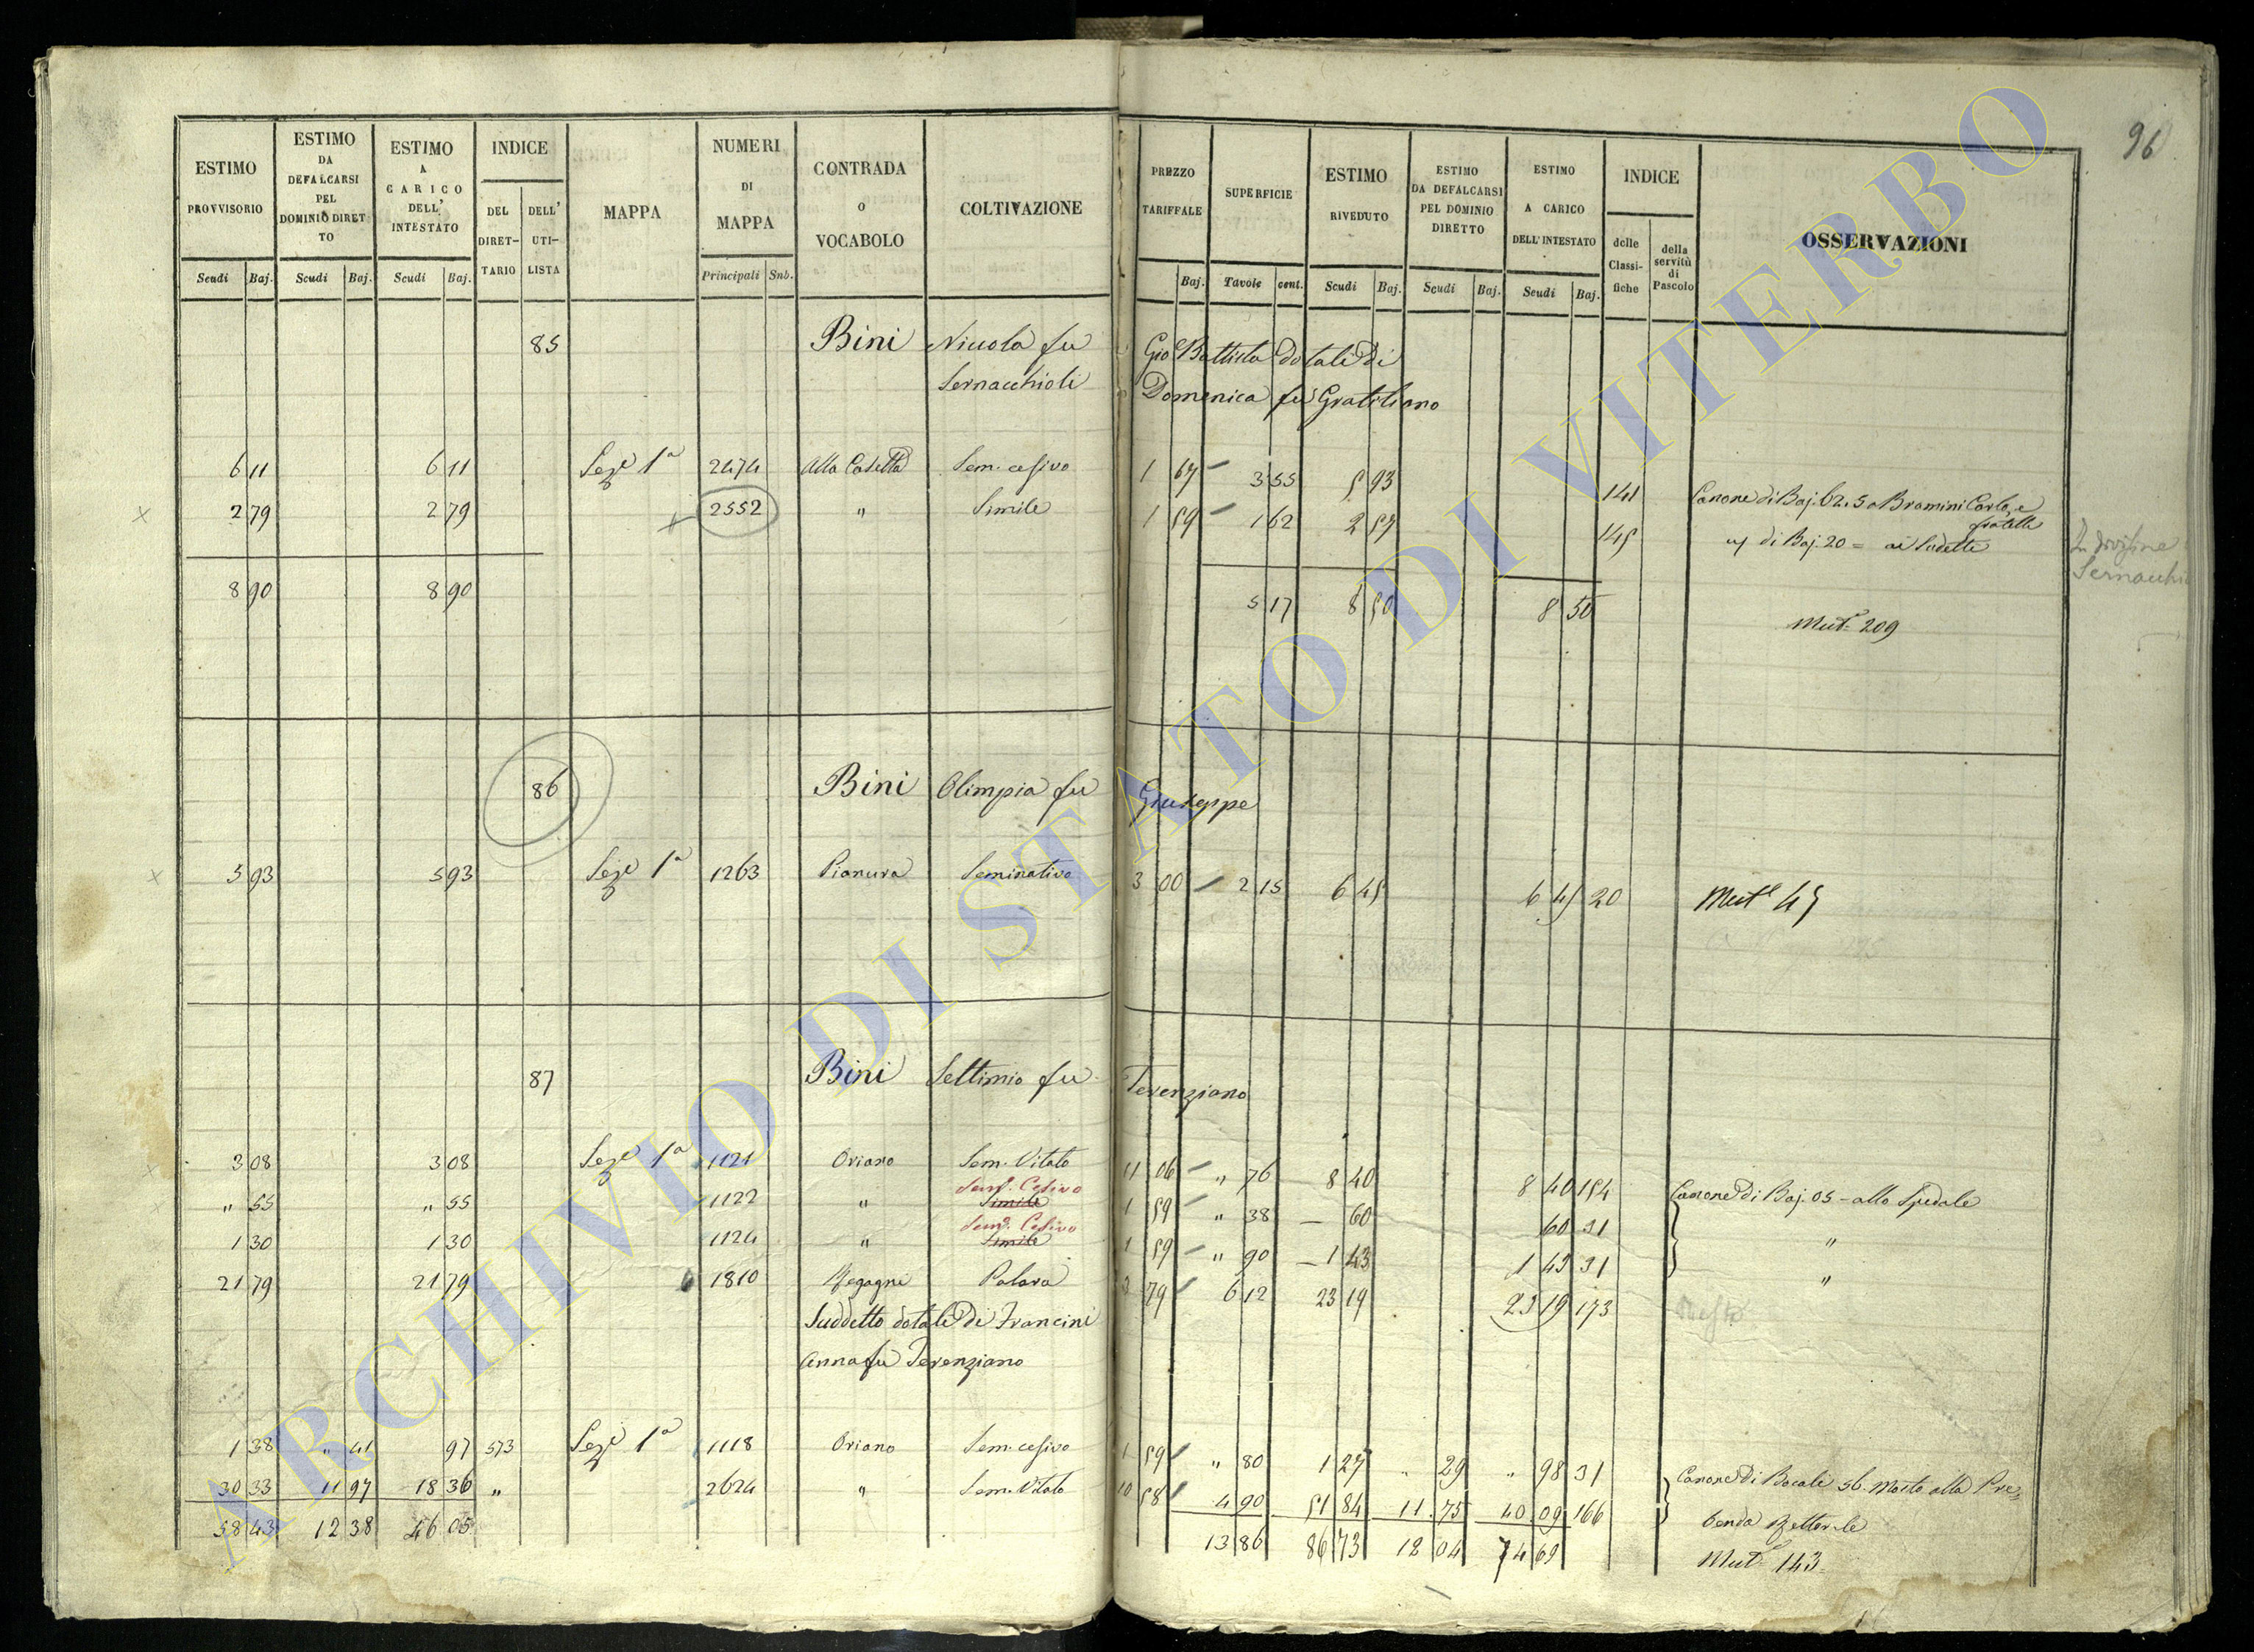 96
ESTIMO PROVVISORIO
ESTIMO DA DEFALCARSI PEL DOMINIO DIRETTO
ESTIMO A CARICO DELL' INTESTATO
INDICE
DEL DIRET-TARIO
DELL' UTI-LISTA
MAPPA
NUMERI DI MAPPA
CONTRADA O VOCABOLO
COLTIVAZIONE
PREZZO TARIFFALE
SUPERFICIE
ESTIMO RIVEDUTO
ESTIMO DA DEFALCARSI PEL DOMINIO DIRETTO
ESTIMO A CARICO DELL'INTESTATO
INDICE
delle Classi-fiche
della servitù di Pascolo
OSSERVAZIONI
Scudi Baj. Scudi Baj. Scudi Baj. Principali Sub. Baj. Tavole cent. Scudi Baj. Scudi Baj. Scudi Baj.
85 Bini Nicola fu Gio Battista dotale di
Sernacchioli Domenica fu Gratiliano
6 11 6 11 Seze 1a 2474 Alla Casetta Sem. cesivo 1 67 3 55 5 93 141 Canone di Baj. 62.5 a Bramini Carlo, e fratelli
2 79 2 79 2552 " Simile 1 59 1 62 2 57 145 di Baj. 20 = ai Sudetti
8 90 8 90 5 17 8 50 8 50
Mut. 209
86 Bini Olimpia fu Giuseppe
5 93 5 93 Seze 1a 1263 Pianura Seminativo 3 00 2 15 6 45 6 45 20 Mute 45
87 Bini Settimio fu Terenziano
3 08 3 08 Seze 1a 1121 Oriano Sem. Vitato 11 06 " 76 8 40 8 40 154 Canone di Baj. 05 - allo Spedale
Sem. Cesivo
" 55 " 55 1122 " Simile 1 59 " 38 — 60 60 31 "
Sem. Cesivo
1 30 1 30 1124 " Simile 1 59 " 90 — 1 43 1 43 31 "
21 79 21 79 1810 Palara 3 79 6 12 23 19 23 19 173
Suddetto dotale di Francini
Anna fu Terenziano
1 38 " 41 97 573 Seze 1a 1118 Oriano Sem. cesivo 1 59 " 80 1 27 " 29 " 98 31 Canone di Bocali 56. Mosto alla Pre=
30 33 11 97 18 36 " 2624 " Sem. Vitato 10 58 4 90 51 84 11.75 40.09 166 benda
58 43 12 38 46 05 13 86 86 73 12 04 74 69 Mut. 143
ARCHIVIO DI STATO DI VITERBO